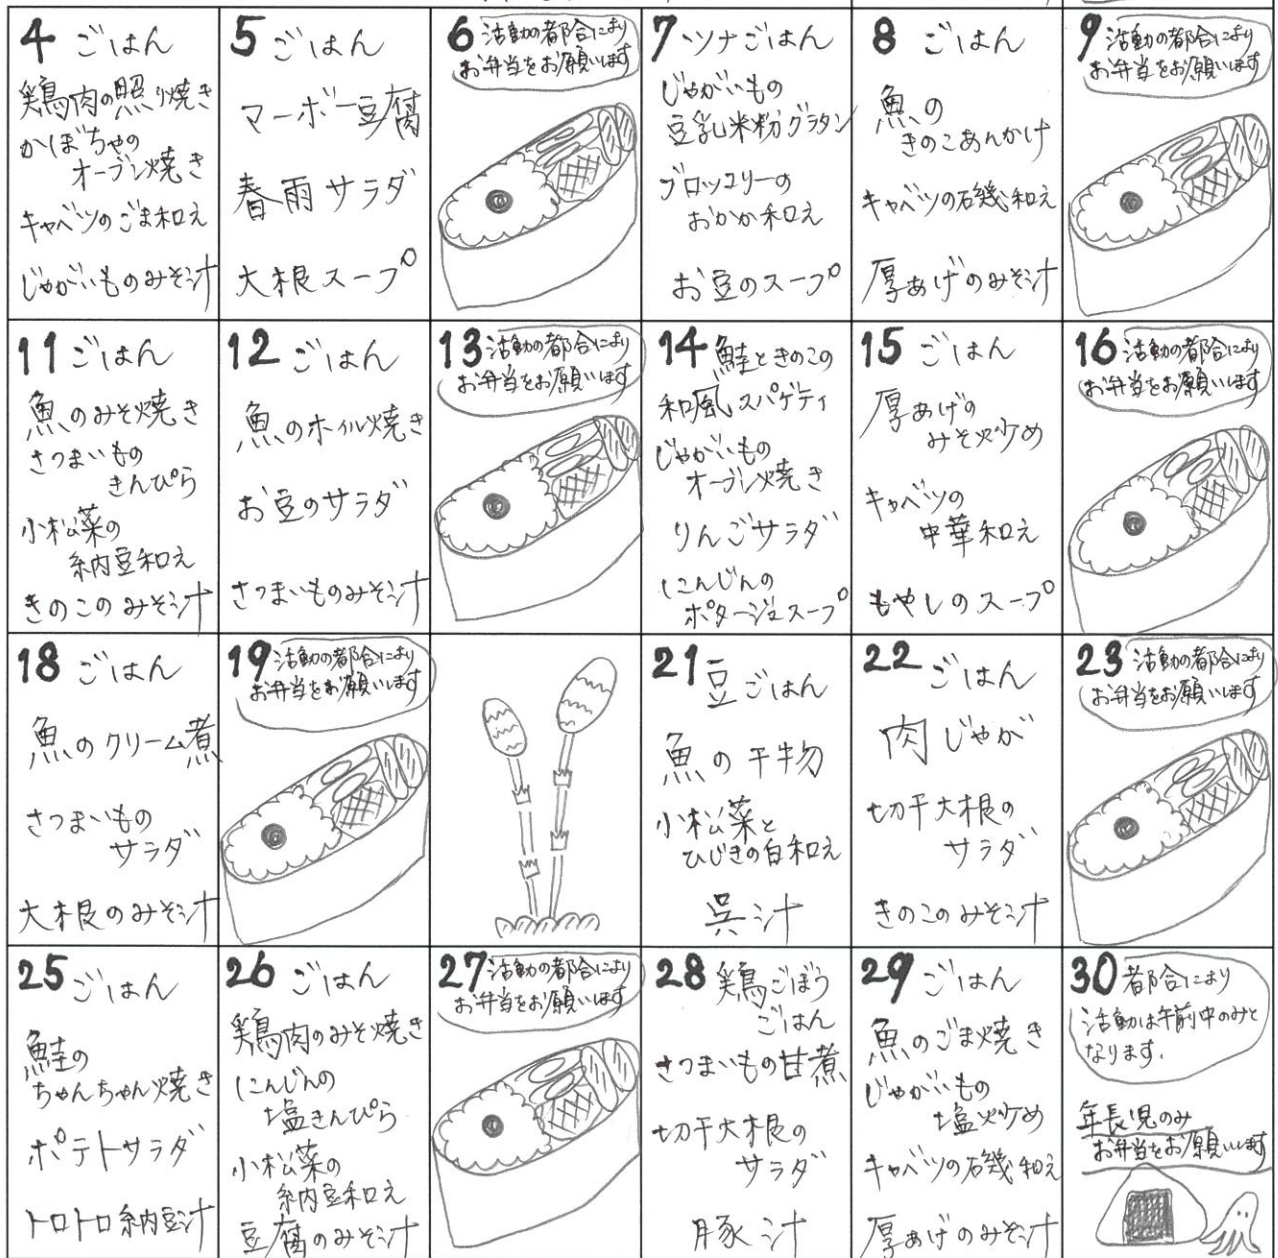 4 ごはん
鶏肉の照り焼き
かぼちゃの
オーブン焼き
キャベツのごま和え
じゃがいものみそ汁
5 ごはん
マーボー豆腐
春雨サラダ
大根スープ
6 活動の都合により
お弁当をお願いします
7 ツナごはん
じゃがいもの
豆乳米粉グラタン
ブロッコリーの
おかか和え
お豆のスープ
8 ごはん
魚の
きのこあんかけ
キャベツの磯和え
厚あげのみそ汁
9 活動の都合により
お弁当をお願いします
11 ごはん
魚のみそ焼き
さつまいもの
きんぴら
小松菜の
納豆和え
きのこのみそ汁
12 ごはん
魚のホイル焼き
お豆のサラダ
さつまいものみそ汁
13 活動の都合により
お弁当をお願いします
14 鮭ときのこの
和風スパゲティ
じゃがいもの
オーブン焼き
りんごサラダ
にんじんの
ポタージュスープ
15 ごはん
厚あげの
みそ炒め
キャベツの
中華和え
もやしのスープ
16 活動の都合により
お弁当をお願いします
18 ごはん
魚のクリーム煮
さつまいもの
サラダ
大根のみそ汁
19 活動の都合により
お弁当をお願いします
21 豆ごはん
魚の干物
小松菜と
ひじきの白和え
呉汁
22 ごはん
肉じゃが
切干大根の
サラダ
きのこのみそ汁
23 活動の都合により
お弁当をお願いします
25 ごはん
鮭の
ちゃんちゃん焼き
ポテトサラダ
トロトロ納豆汁
26 ごはん
鶏肉のみそ焼き
にんじんの
塩きんぴら
小松菜の
納豆和え
豆腐のみそ汁
27 活動の都合により
お弁当をお願いします
28 鶏ごぼう
ごはん
さつまいもの甘煮
切干大根の
サラダ
豚汁
29 ごはん
魚のごま焼き
じゃがいもの
塩炒め
キャベツの磯和え
厚あげのみそ汁
30 都合により
活動は午前中のみと
なります.
年長児のみ
お弁当をお願いします